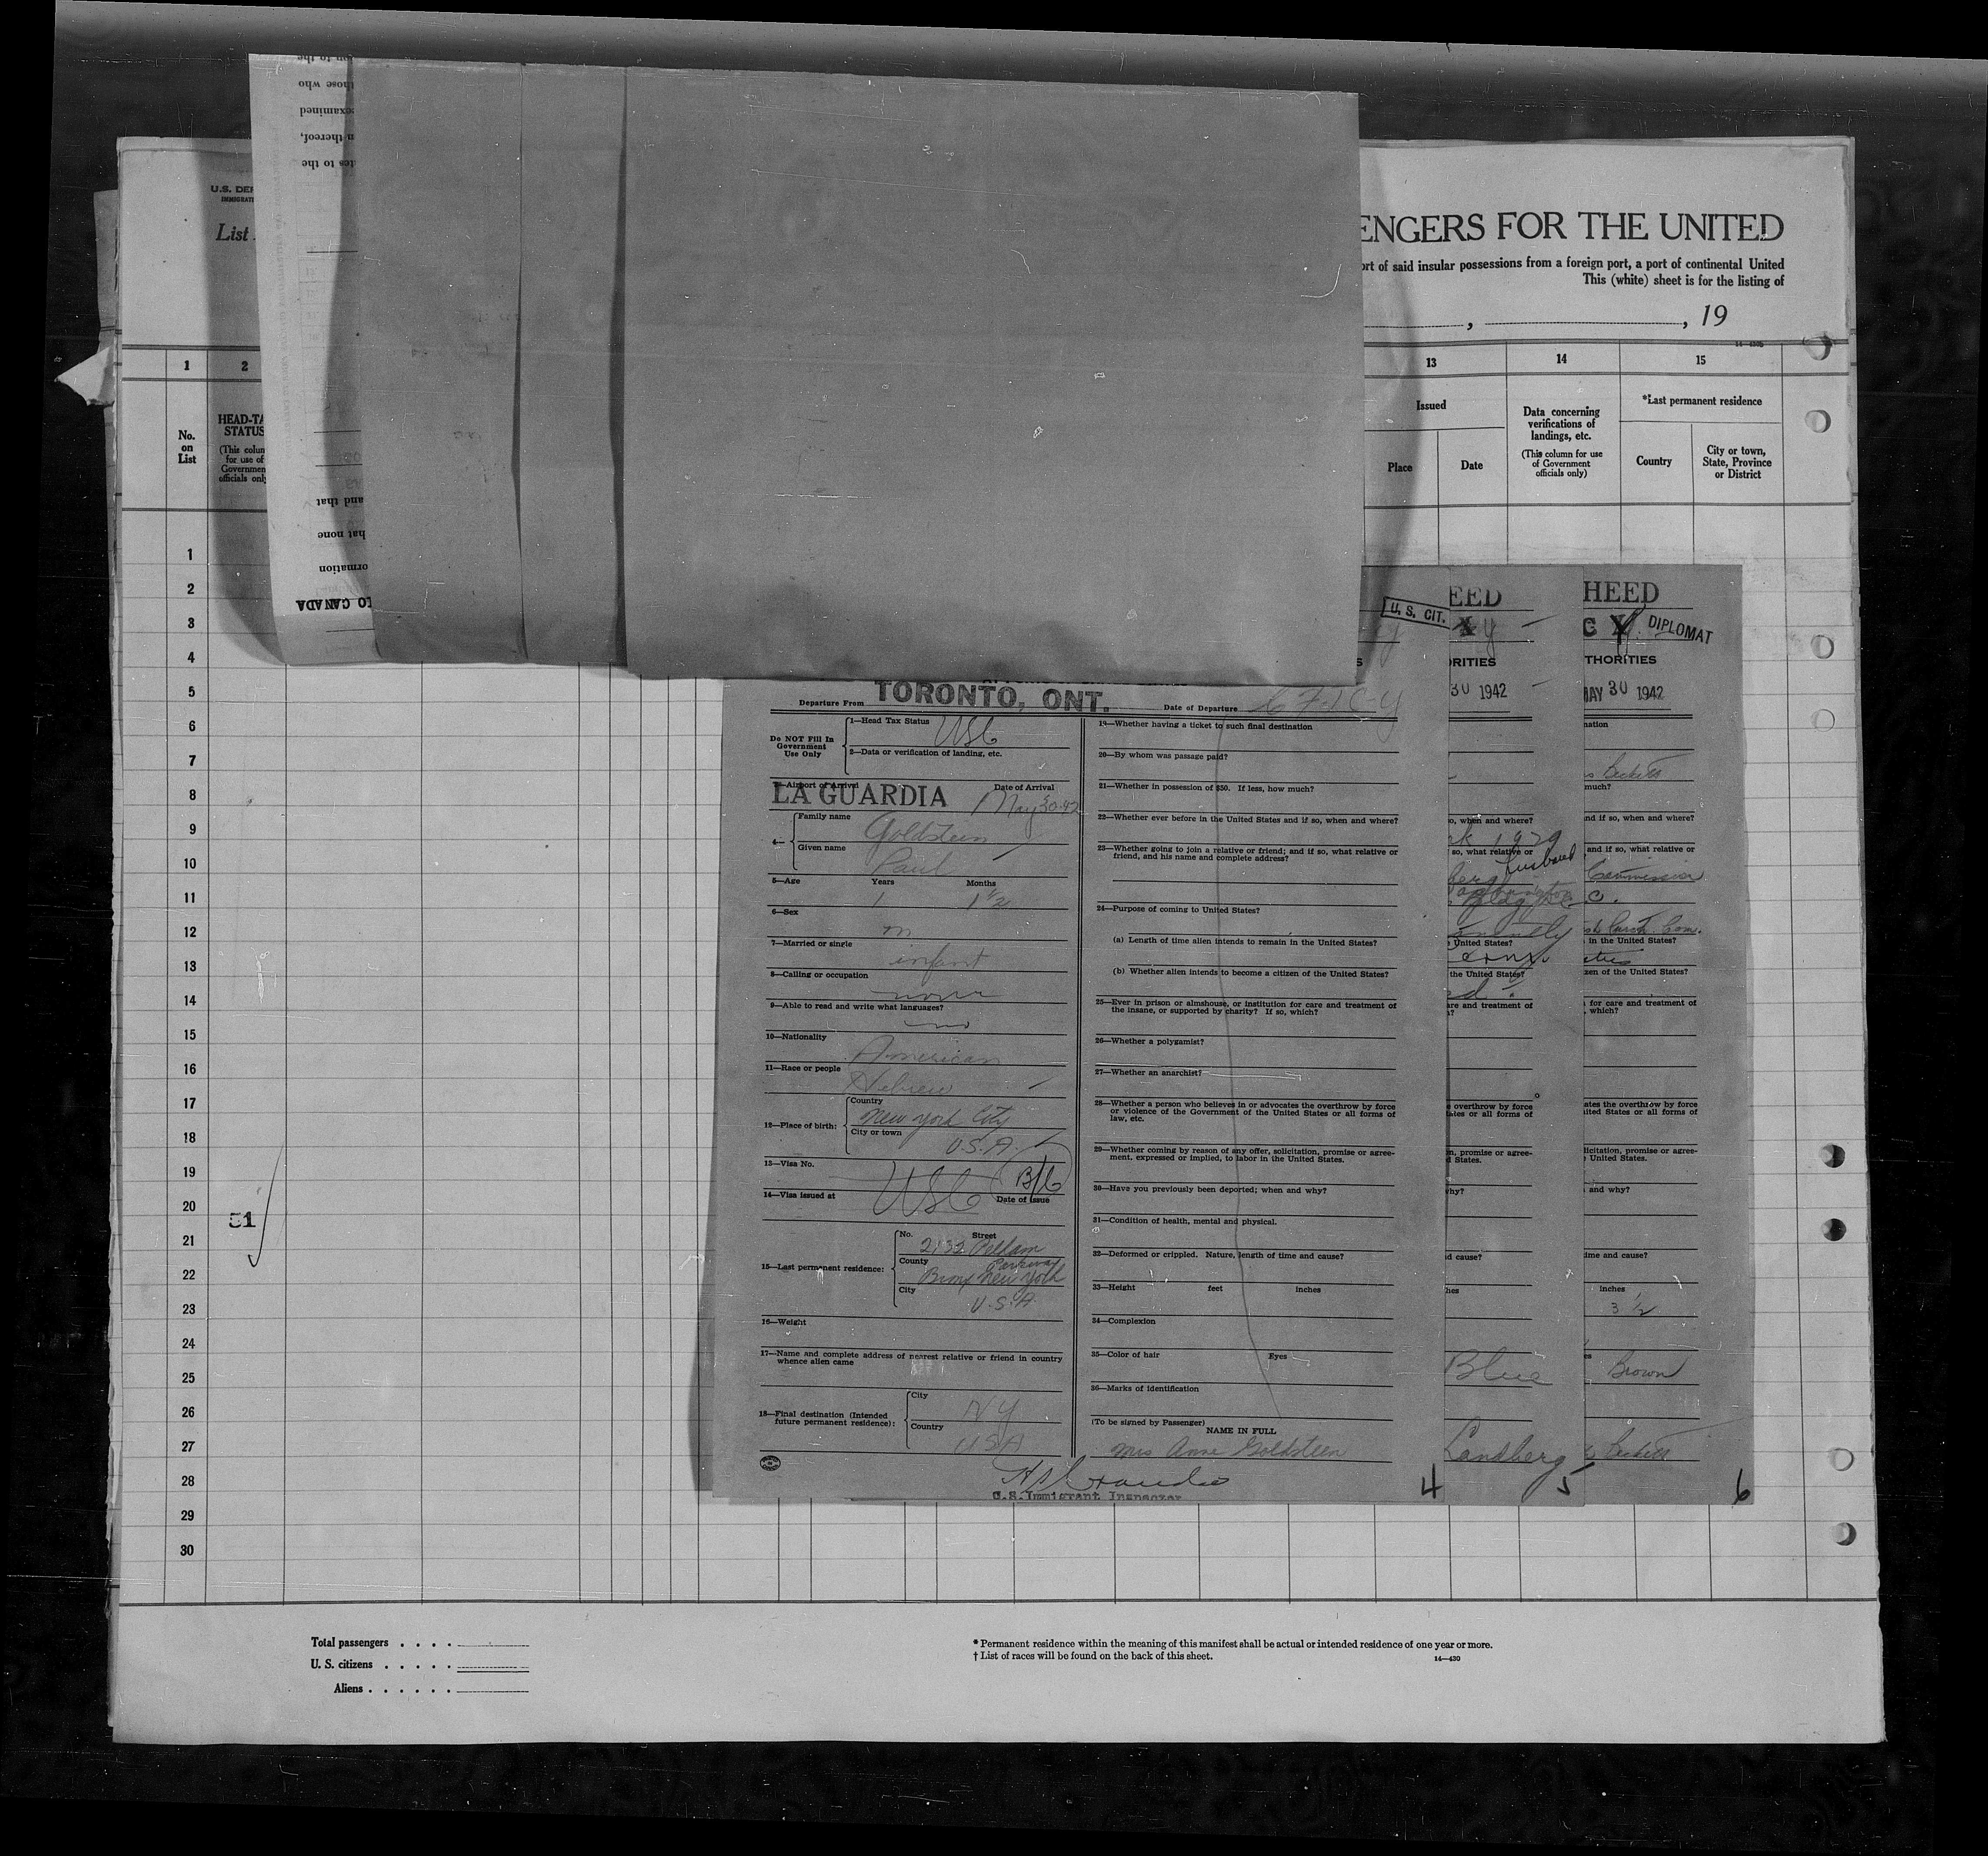 on to the
those who
examined
n thereof,
tes to the
and that
hat none
ormation
TO CANADA
U.S. DEP
IMMIGRATI
List
ENGERS FOR THE UNITED
ort of said insular possessions from a foreign port, a port of continental United
This (white) sheet is for the listing of
, , 19
1 2 13 14 15
No. on List
HEAD-TA
STATUS
(This colun
for use of
Governmen
officials only
Issued
Place
Date
Data concerning
verifications of
landings, etc.
(This column for use
of Government
officials only)
*Last permanent residence
Country
City or town,
State, Province
or District
1
2
3
4
5
6
7
8
9
10
11
12
13
14
15
16
17
18
19
20
21
22
23
24
25
26
27
28
29
30
51
U. S. CIT.
Departure From TORONTO, ONT. Date of Departure
Do NOT Fill In
Government
Use Only
1—Head Tax Status USC
2—Data or verification of landing, etc.
3—Airport of Arrival Date of Arrival
LA GUARDIA May 30-42
4—
Family name Goldstein
Given name Paul
5—Age Years Months
1 1 1/2
6—Sex
m
7—Married or single
infant
8—Calling or occupation
none
9—Able to read and write what languages?
no
10—Nationality
American
11—Race or people
Hebrew
12—Place of birth:
Country
New York City
City or town
U.S.A.
13—Visa No.
USC B/C
14—Visa issued at Date of Issue
15—Last permanent residence:
No. Street
2132 Pelham
Parkway
County
Bronx New York
City
U.S.A.
16—Weight
17—Name and complete address of nearest relative or friend in country
whence alien came
18—Final destination (Intended
future permanent residence):
City NY
Country USA
19—Whether having a ticket to such final destination
20—By whom was passage paid?
21—Whether in possession of $50. If less, how much?
22—Whether ever before in the United States and if so, when and where?
23—Whether going to join a relative or friend; and if so, what relative or
friend, and his name and complete address?
24—Purpose of coming to United States?
(a) Length of time alien intends to remain in the United States?
(b) Whether alien intends to become a citizen of the United States?
25—Ever in prison or almshouse, or institution for care and treatment of
the insane, or supported by charity? If so, which?
26—Whether a polygamist?
27—Whether an anarchist?
28—Whether a person who believes in or advocates the overthrow by force
or violence of the Government of the United States or all forms of
law, etc.
29—Whether coming by reason of any offer, solicitation, promise or agree-
ment, expressed or implied, to labor in the United States.
30—Have you previously been deported; when and why?
31—Condition of health, mental and physical.
32—Deformed or crippled. Nature, length of time and cause?
33—Height feet inches
34—Complexion
35—Color of hair Eyes
36—Marks of identification
(To be signed by Passenger)
NAME IN FULL
Mrs Anne Goldstein
U.S. Immigrant Inspector
4
EED
ORITIES
30 1942
o, when and where?
1929
so, what relative or
husband
United States?
the United States?
are and treatment of
overthrow by force
ates or all forms of
n, promise or agree-
d States.
why?
d cause?
hes
Blue
Landberg
5
HEED
C Y
DIPLOMAT
THORITIES
MAY 30 1942
nation
Beckett
much?
and if so, when and where?
and if so, what relative or
Commission
C.
in the United States?
zen of the United States?
for care and treatment of
, which?
ates the overthrow by force
ited States or all forms of
licitation, promise or agree-
United States.
and why?
ime and cause?
inches
3 1/2
es
Brown
Beckett
6
Total passengers . . . .
U. S. citizens . . . . .
Aliens . . . . . .
* Permanent residence within the meaning of this manifest shall be actual or intended residence of one year or more.
† List of races will be found on the back of this sheet.
14—430